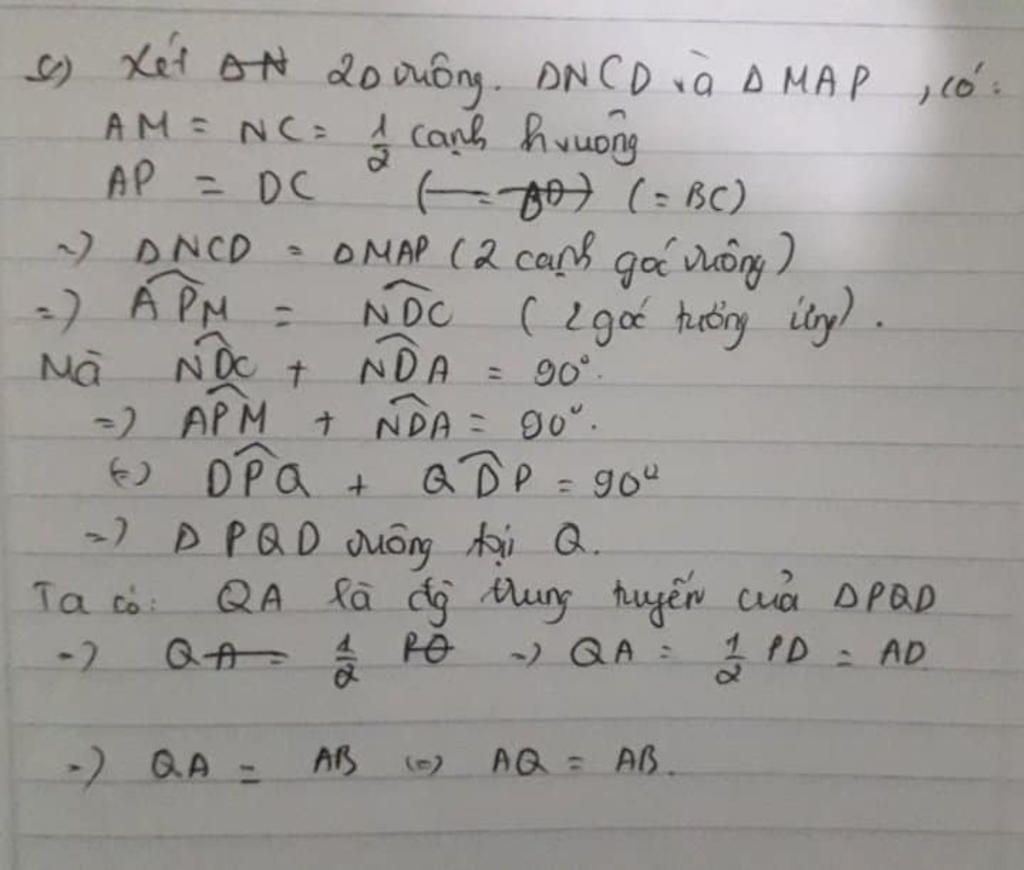 c) Xét 2Δ vuông. ΔNCD và ΔMAP, có:
AM = NC = 1/2 cạnh hvuông
AP = DC (= BC)
=) ΔNCD = ΔMAP (2 cạnh góc vuông)
=) APM = NDC (2 góc tương ứng).
Mà NDC + NDA = 90°.
=) APM + NDA = 90°.
(=) DPQ + QDP = 90°
=) Δ PQD vuông tại Q.
Ta có: QA là đg trung tuyến của ΔPQD
=) QA = 1/2 PQ =) QA = 1/2 PD = AD
=) QA = AB (=) AQ = AB.